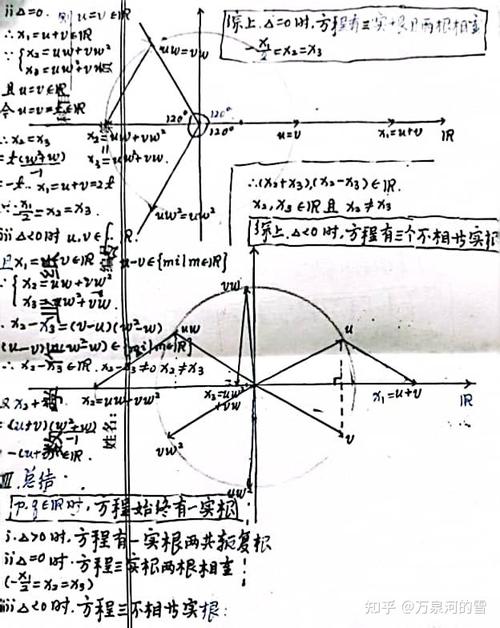 ii △=0. 则 u=v∈IR
∴x₁=u+v∈IR
x₂=uw+vw²
x₃=uw²+vw
且 u=v∈IR
令 u=v=t∈IR
∴x₂=x₃
=t(w²+w)
-1
=-t. x₁=u+v=2t
∴-x₁/2=x₂=x₃.
综上.△=0时,方程有三实根且两根相等
-x₁/2=x₂=x₃
uw=vw
120°
120°
120°
120°
x₂=uw+vw²
x₃=uw²+vw.
u=v
x₁=u+v
IR
uw²=vw²
∴(x₂+x₃),(x₂-x₃)∈IR.
x₂,x₃∈IR且 x₂≠x₃
综上.△<0时,方程有三个不相等实根
iii △<0时 u,v∉IR.
且x₁=u+v∈IR u-v∈{mi|m∈IR}
x₂=uw+vw²
x₃=uw²+vw.
∴x₂-x₃=(v-u)(w²-w)
(u-v),(w-w²)∈{mi|m∈IR}
∴x₂-x₃∈IR. x₂-x₃≠0 x₂≠x₃
又x₂+x₃
=(u+v)(w²+w)
-1
=-(u+v)∈IR.
姓名:
vw
uw
u
x₂=uw+vw²
x₃=uw²+vw
x₁=u+v
IR
vw²
v
uw²
III.总结
p.q∈IR时,方程始终有一实根
i.△>0时.方程有一实根两共轭复根
ii△=0时.方程三实根两根相等
(-x₁/2=x₂=x₃)
iii△<0时.方程三不相等实根.
知乎 @万泉河的雪